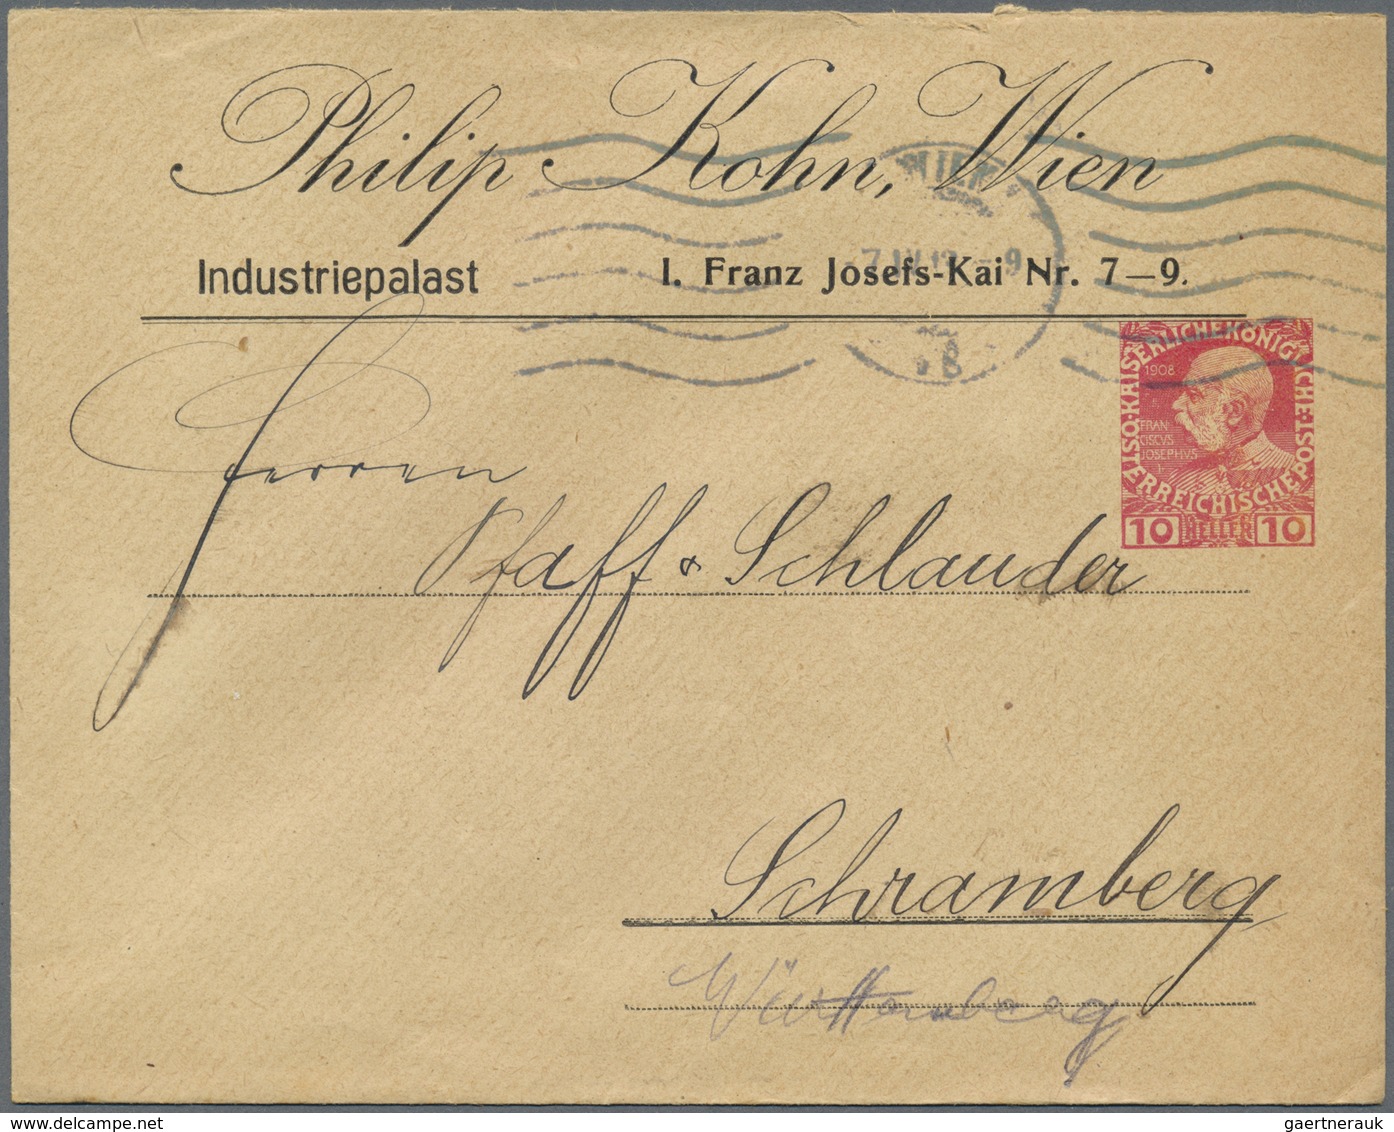 Philip Kohn, Wien
Industriepalast I. Franz Josefs-Kai Nr. 7–9.
WIEN
KAISERLICHE KÖNIGLICHE ÖSTERREICHISCHE POST
1908
FRAN
CISCVS
JOSEPHVS
I
10 HELLER 10
Herren
Pfaff & Schlauder
Schramberg
Württemberg
gaertnerauk